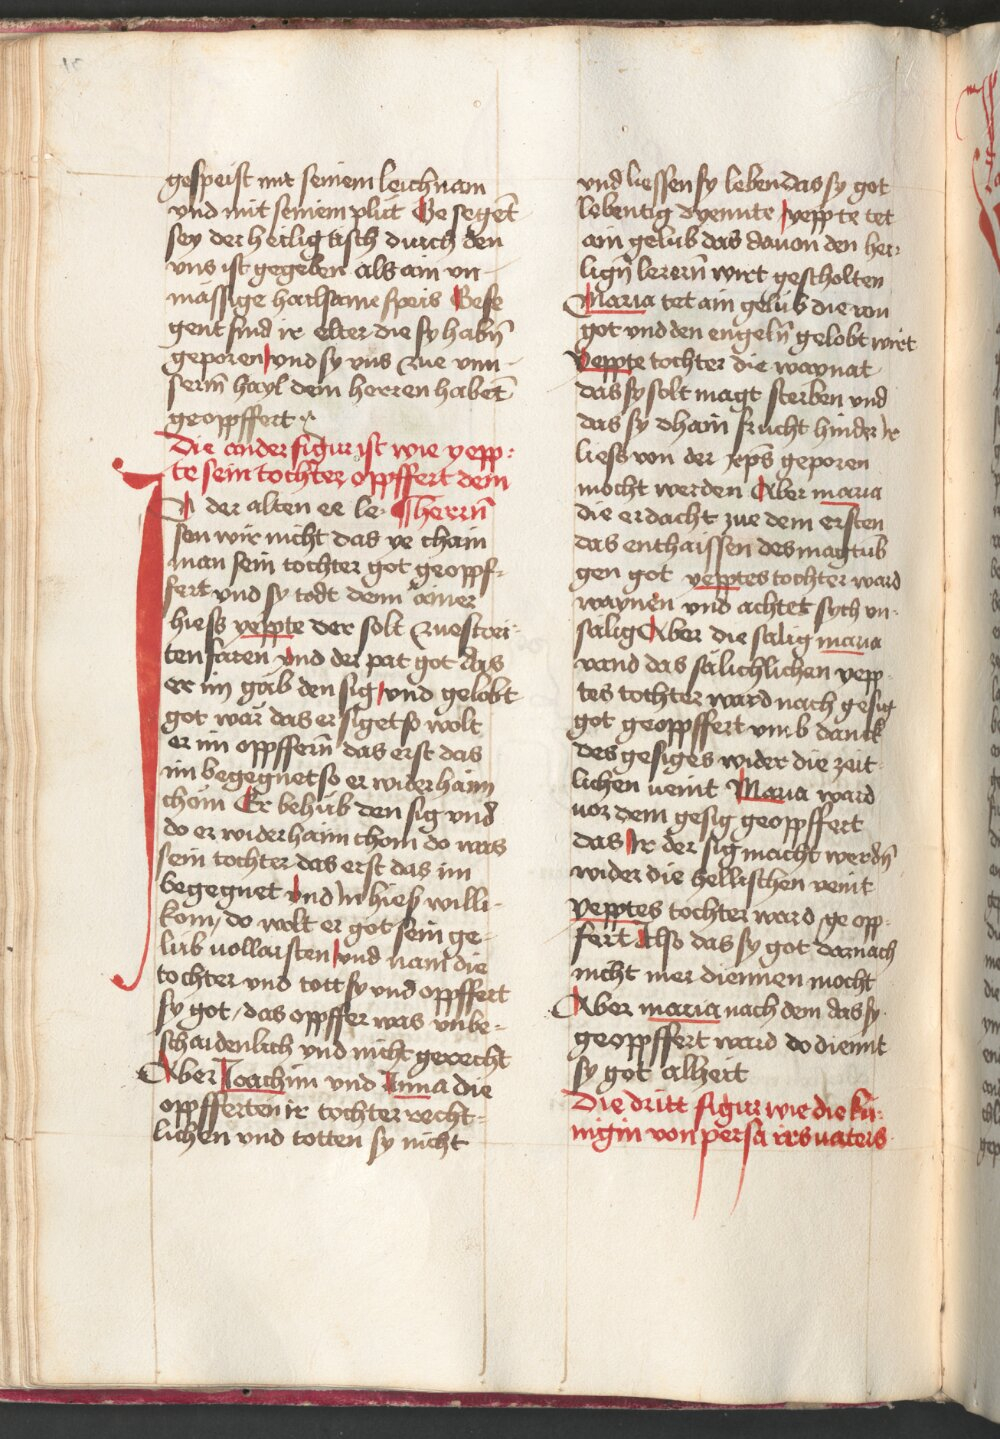 gespeist mit seinem leichnam
vnd mit seinem plůt Gesegēt
sey der heilig tisch durch den
vns ist gegeben als ain vn-
mässige hailsame speis Gese
gent sind ir elter die sy habn̄
geporen vnd sy vns zue vnn-
serm hayl dem herren habēt
geopffert
Die ander figur ist wie yepp-
te sein tochter opffert dem
herrn̄
In der alten ee le-
sen wir nicht das ye chain
man sein tochter got geopf-
fert vnd sy todt denn ainer
hiess yeppte der solt zue streit
ten faren vnd der pat got das
er im gäb den sig vnd gelobt
got wär das er siget so wolt
er im opffern̄ das erst das
im begegnet so er wider haim
chöm Er behůb den sig vnd
do er wider haim chom do was
sein tochter das erst das im
begegnet vnd in hies willi-
kom, do wolt er got sein ge-
lüb vollaisten vnd nam die
tochter vnd tott sy vnd opffert
sy got, das opffer was vnbe-
schaidenlich vnd nicht gerecht
Aber Joachim vnd Anna die
opfferten ir tochter recht-
lichen vnd totten sy nicht
vnd liessen sy leben das sy got
lebentig dyennte yeppte tet
ain gelüb das dauon den hei-
lign̄ lerern̄ wirt gescholten
Maria tet ain gelüb die von
got vnd den engeln̄ gelobt wirt
Yeppte tochter die waynat
das sy solt magt sterben vnd
das sy dhain frucht hinder ir
liess von der xp̄s geporen
möcht werden Aber maria
die erdacht zue dem ersten
das enthaissen des magtüb
gen got yepptes tochter ward
waynen vnd achtet sych vn-
salig Aber die sälig maria
vand das sälichlichen yepp-
tes tochter ward nach gesig
got geopffert vmb danck
des gesiges wider die zeit
lichen veint Maria ward
vor dem gesig geopffert
das ir der sig macht werdn̄
wider die hellischen veint
yepptes tochter ward geopp-
fert Also das sy got darnach
nicht mer diennen mocht
Aber maria nach dem das sy
geopffert ward do diennt
sy got allzeit
Die dritt figur wie die kü-
nigin von persa irs vaters